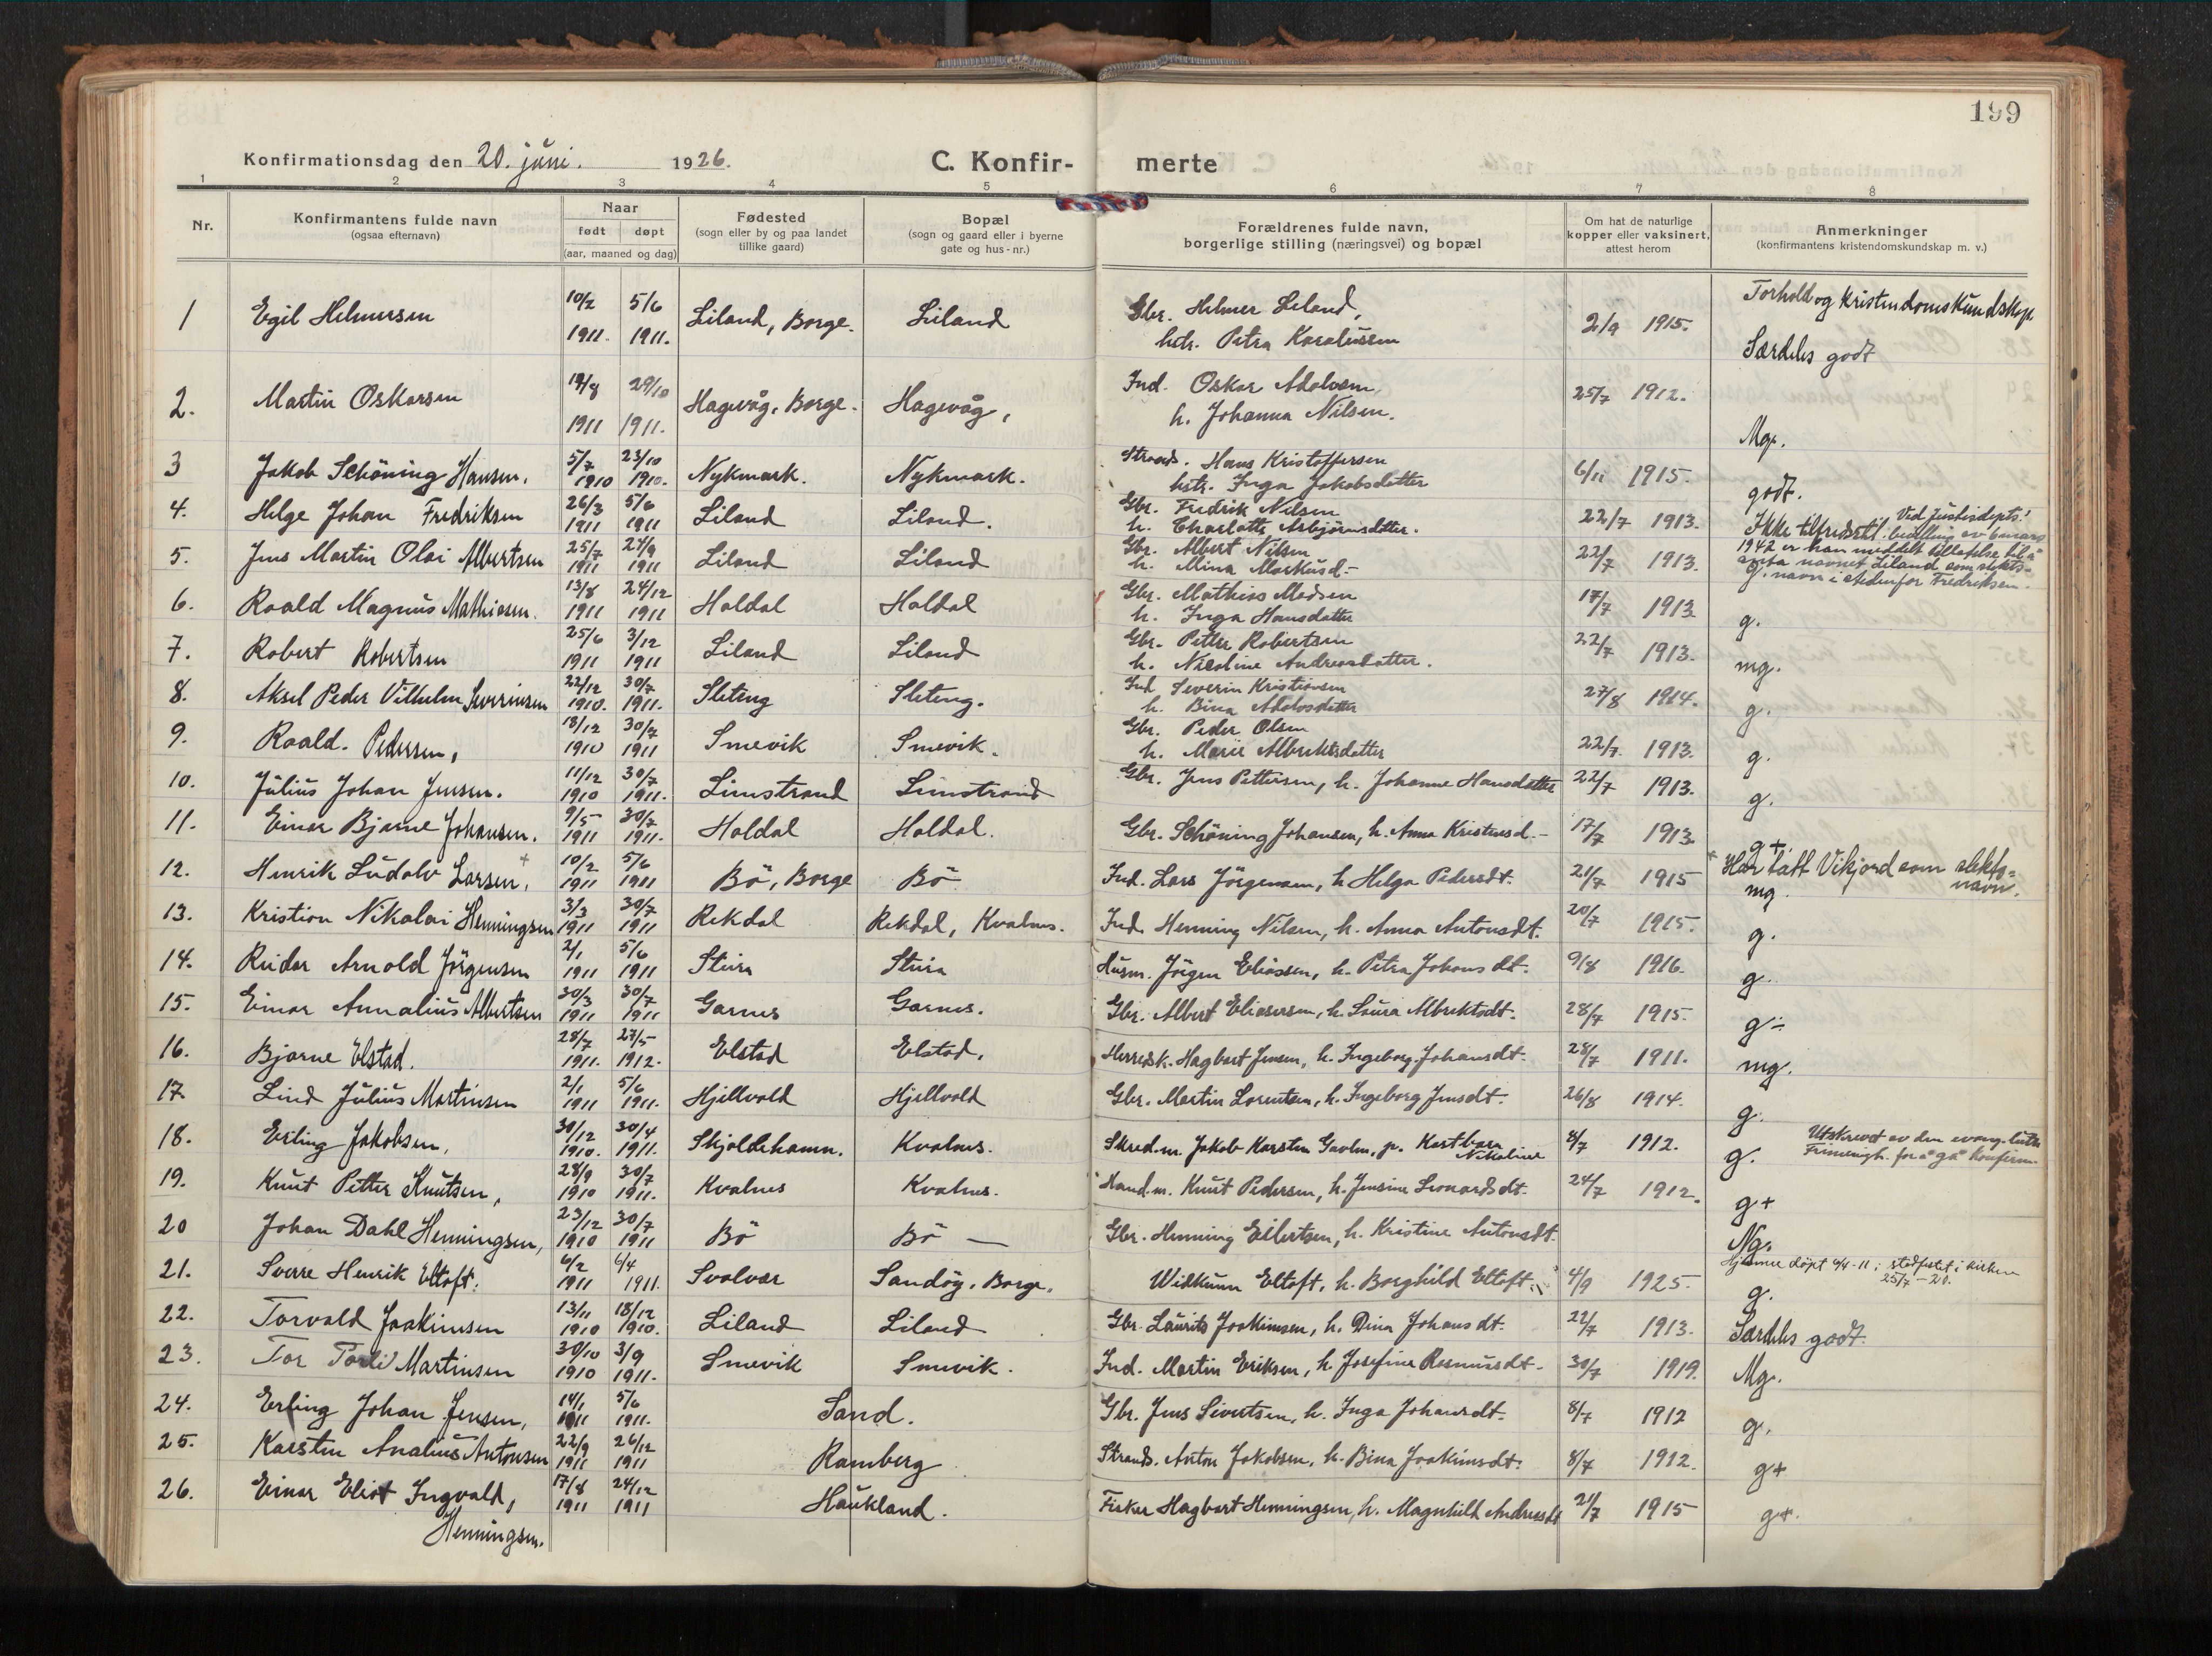 199
Konfirmationsdag den 20. juni. 1926. C. Konfir- merte
1 2 3 4 5 6 7 8
Nr. Konfirmantens fulde navn (ogsaa efternavn) Naar født døpt (aar, maaned og dag) Fødested (sogn eller by og paa landet tillike gaard) Bopæl (sogn og gaard eller i byerne gate og hus-nr.) Forældrenes fulde navn, borgerlige stilling (næringsvei) og bopæl Om hat de naturlige kopper eller vaksinert, attest herom Anmerkninger (konfirmantens kristendomskundskap m. v.)
Forhold og kristendomskundskap.
1 Egil Helmersen 10/2 1911. 5/6 1911. Liland, Borge. Liland Gbr. Helmer Liland, hstr. Petra Karoliussen 2/9 1915. Særdeles godt
2. Martin Oskarsen 19/8 1911 29/10 1911. Hagevåg, Borge. Hagevåg, Ind. Oskar Adolvsen, h. Johanna Nilsen. 25/7 1912. Mg.
3 Jakob Schöning Hansen. 5/7 1910 23/10 1910. Nykmark. Nykmark. Strands. Hans Kristoffersen hstr. Inga Jakobsdatter 6/11 1915. godt.
4. Helge Johan Fredriksen 26/3 1911 5/6 1911 Liland Liland. Gbr. Fredrik Nilsen h. Charlotte Asbjörnsdatter. 22/7 1913. Ikke tilfredsst!
Ved Justisdepts! bevilling av 6 mars
1942 er han meddelt tillatelse til å
anta navnet Liland som slekts-
navn i stedenfor Fredriksen.
5. Jens Martin Olai Albertsen 25/7 1911 24/9 1911 Liland Liland Gbr. Albert Nilsen h. Mina Markusd.- 22/7 1913. g.
6. Roald Magnus Mathiasen. 13/8 1911 24/12 1911 Haldal Haldal Gbr. Mathias Madsen h. Inga Hansdatter 17/7 1913 g.
7. Robert Robertsen 25/6 1911 3/12 1911 Liland Liland Gbr. Petter Robertsen h. Nicoline Andreasdatter. 22/7 1913. mg.
8. Aksel Peder Vilhelm Severinsen 22/12 1910. 30/7 1911. Sletteng Sletteng. Ind. Severin Kristiansen h. Bina Adolvsdatter 27/8 1914. g.
9. Roald. Pedersen, 18/12 1910 30/7 1911 Smevik Smevik. Gbr. Peder Olsen h. Marie Albrektsdatter 22/7. 1913. g.
10. Julius Johan Jensen. 11/12 1910 30/7 1911. Limstrand Limstrand Gbr. Jens Pettersen, h. Johanne Hansdatter 22/7 1913. g.
11. Einar Bjarne Johansen. 9/5 1911 30/7 1911. Haldal Haldal. Gbr. Schöning Johansen, h. Anna Kristensd.- 17/7 1913 g+.
12. Henrik Ludolv Larsen.+ 10/2 1911 5/6 1911 Bö, Borge Bö Ind. Lars Jörgensen, h Helga Pedersdt. 21/7 1915 mg.
+ Har tatt Vikjord som slekts-
navn.
13. Kristian Nikolai Henningsen 3/3 1911 30/7 1911 Rekdal Rekdal, Kvalnes. Ind. Henning Nilsen, h. Anna Antonsdt. 20/7 1915. g.
14. Reidar Arnold Jörgensen 2/1 1911 5/6 1911 Steira Steira Husm. Jörgen Eliassen, h. Petra Johansdt. 9/8 1916. g.
15. Einar Annalius Albertsen 30/3 1911 30/7 1911 Garnes Garnes. Gbr. Albert Eliasersen, h. Laura Albrektsdt. 28/7 1915. g-
16. Bjarne Elstad. 28/7 1911. 27/5 1912. Elstad Elstad. Herredsk. Hagbart Jensen, h. Ingeborg Johansdt. 28/7 1911. mg.
17. Lind Julius Martinsen 2/1 1911 5/6 1911. Hjellvold Hjellvold Gbr. Martin Lorentsen, h. Ingeborg Jensdt. 26/8 1914. g.
18. Erling Jakobsen, 30/12 1910. 30/4 1911. Skjoldehamn. Kvalnes. Skred.m. Jakob Karsten 8/7 1912. g.
19. Knut Petter Knutsen, 28/9 1910 30/7 1911. Kvalnes Kvalnes. Hand.m. Knut Pedersen, h. Jensine Leonardsdt. 24/7 1912. g+
20 Johan Dahl Henningsen, 23/12 1910 30/7 1911 Bö Bö — Gbr. Henning Eilertsen, h. Kristine Antonsdt. Ng.
21. Sverre Henrik Eltoft. 6/2 1911 6/4 1911. Svolvær Sandöy, Borge. Widkunn Eltoft, h. Borghild Eltoft. 4/9 1925. g.
Hjemme döpt 6/4-11; stadfestet i kirken
25/7 - 20.
22. Torvald Joakimsen 13/11 1910 18/12 1910. Liland Liland Gbr. Laurits Joakimsen, h. Dina Johansdt. 22/7 1913. Særdeles godt.
23. Tor Martinsen 30/10 1910 3/9 1911. Smevik Smevik. Ind. Martin Eriksen, h. Josefine Rasmusdt. 30/7 1919. Mg.
24. Erling Johan Jensen, 14/1 1911 5/6 1911. Sand. Gbr. Jens Sivertsen, h. Inga Johansdt. 8/7 1912 g.
25. Karsten Analius Antonsen 22/9 1911 26/12 1911 Ramberg Strands. Anton Jakobsen, h. Bina Joakimsdt. 8/7 1912. g+
26. Einar Eliot Ingvald, Henningsen. 17/8 1911 24/12 1911 Haukland. Fisker Hagbart Henningsen, h. Magnhild Andreasdt 21/7 1915 g+.